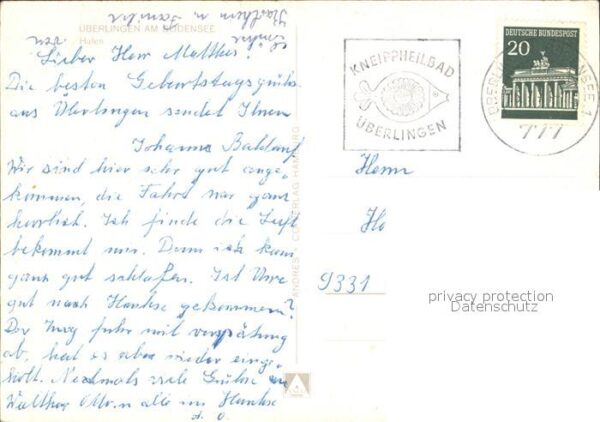 ÜBERLINGEN AM BODENSEE
Hafen
Lieber Herr Matthes!
Die besten Geburtstagsgrüße
aus Überlingen sendet Ihnen
Johanna
Wir sind hier sehr gut ange-
kommen, die Fahrt war ganz
herrlich. Ich finde die Luft
bekommt uns. Denn ich kann
ganz gut schlafen. Ist Uwe
gut nach Hause gekommen?
Der Zug fuhr mit Verspätung
ab, hat es aber wieder einge-
holt. Nochmals viele Grüße an
Walther, alle im Hause
d. O.
KNEIPPHEILBAD
ÜBERLINGEN
DEUTSCHE BUNDESPOST
20
777
Herrn
Ho
9331
privacy protection
Datenschutz